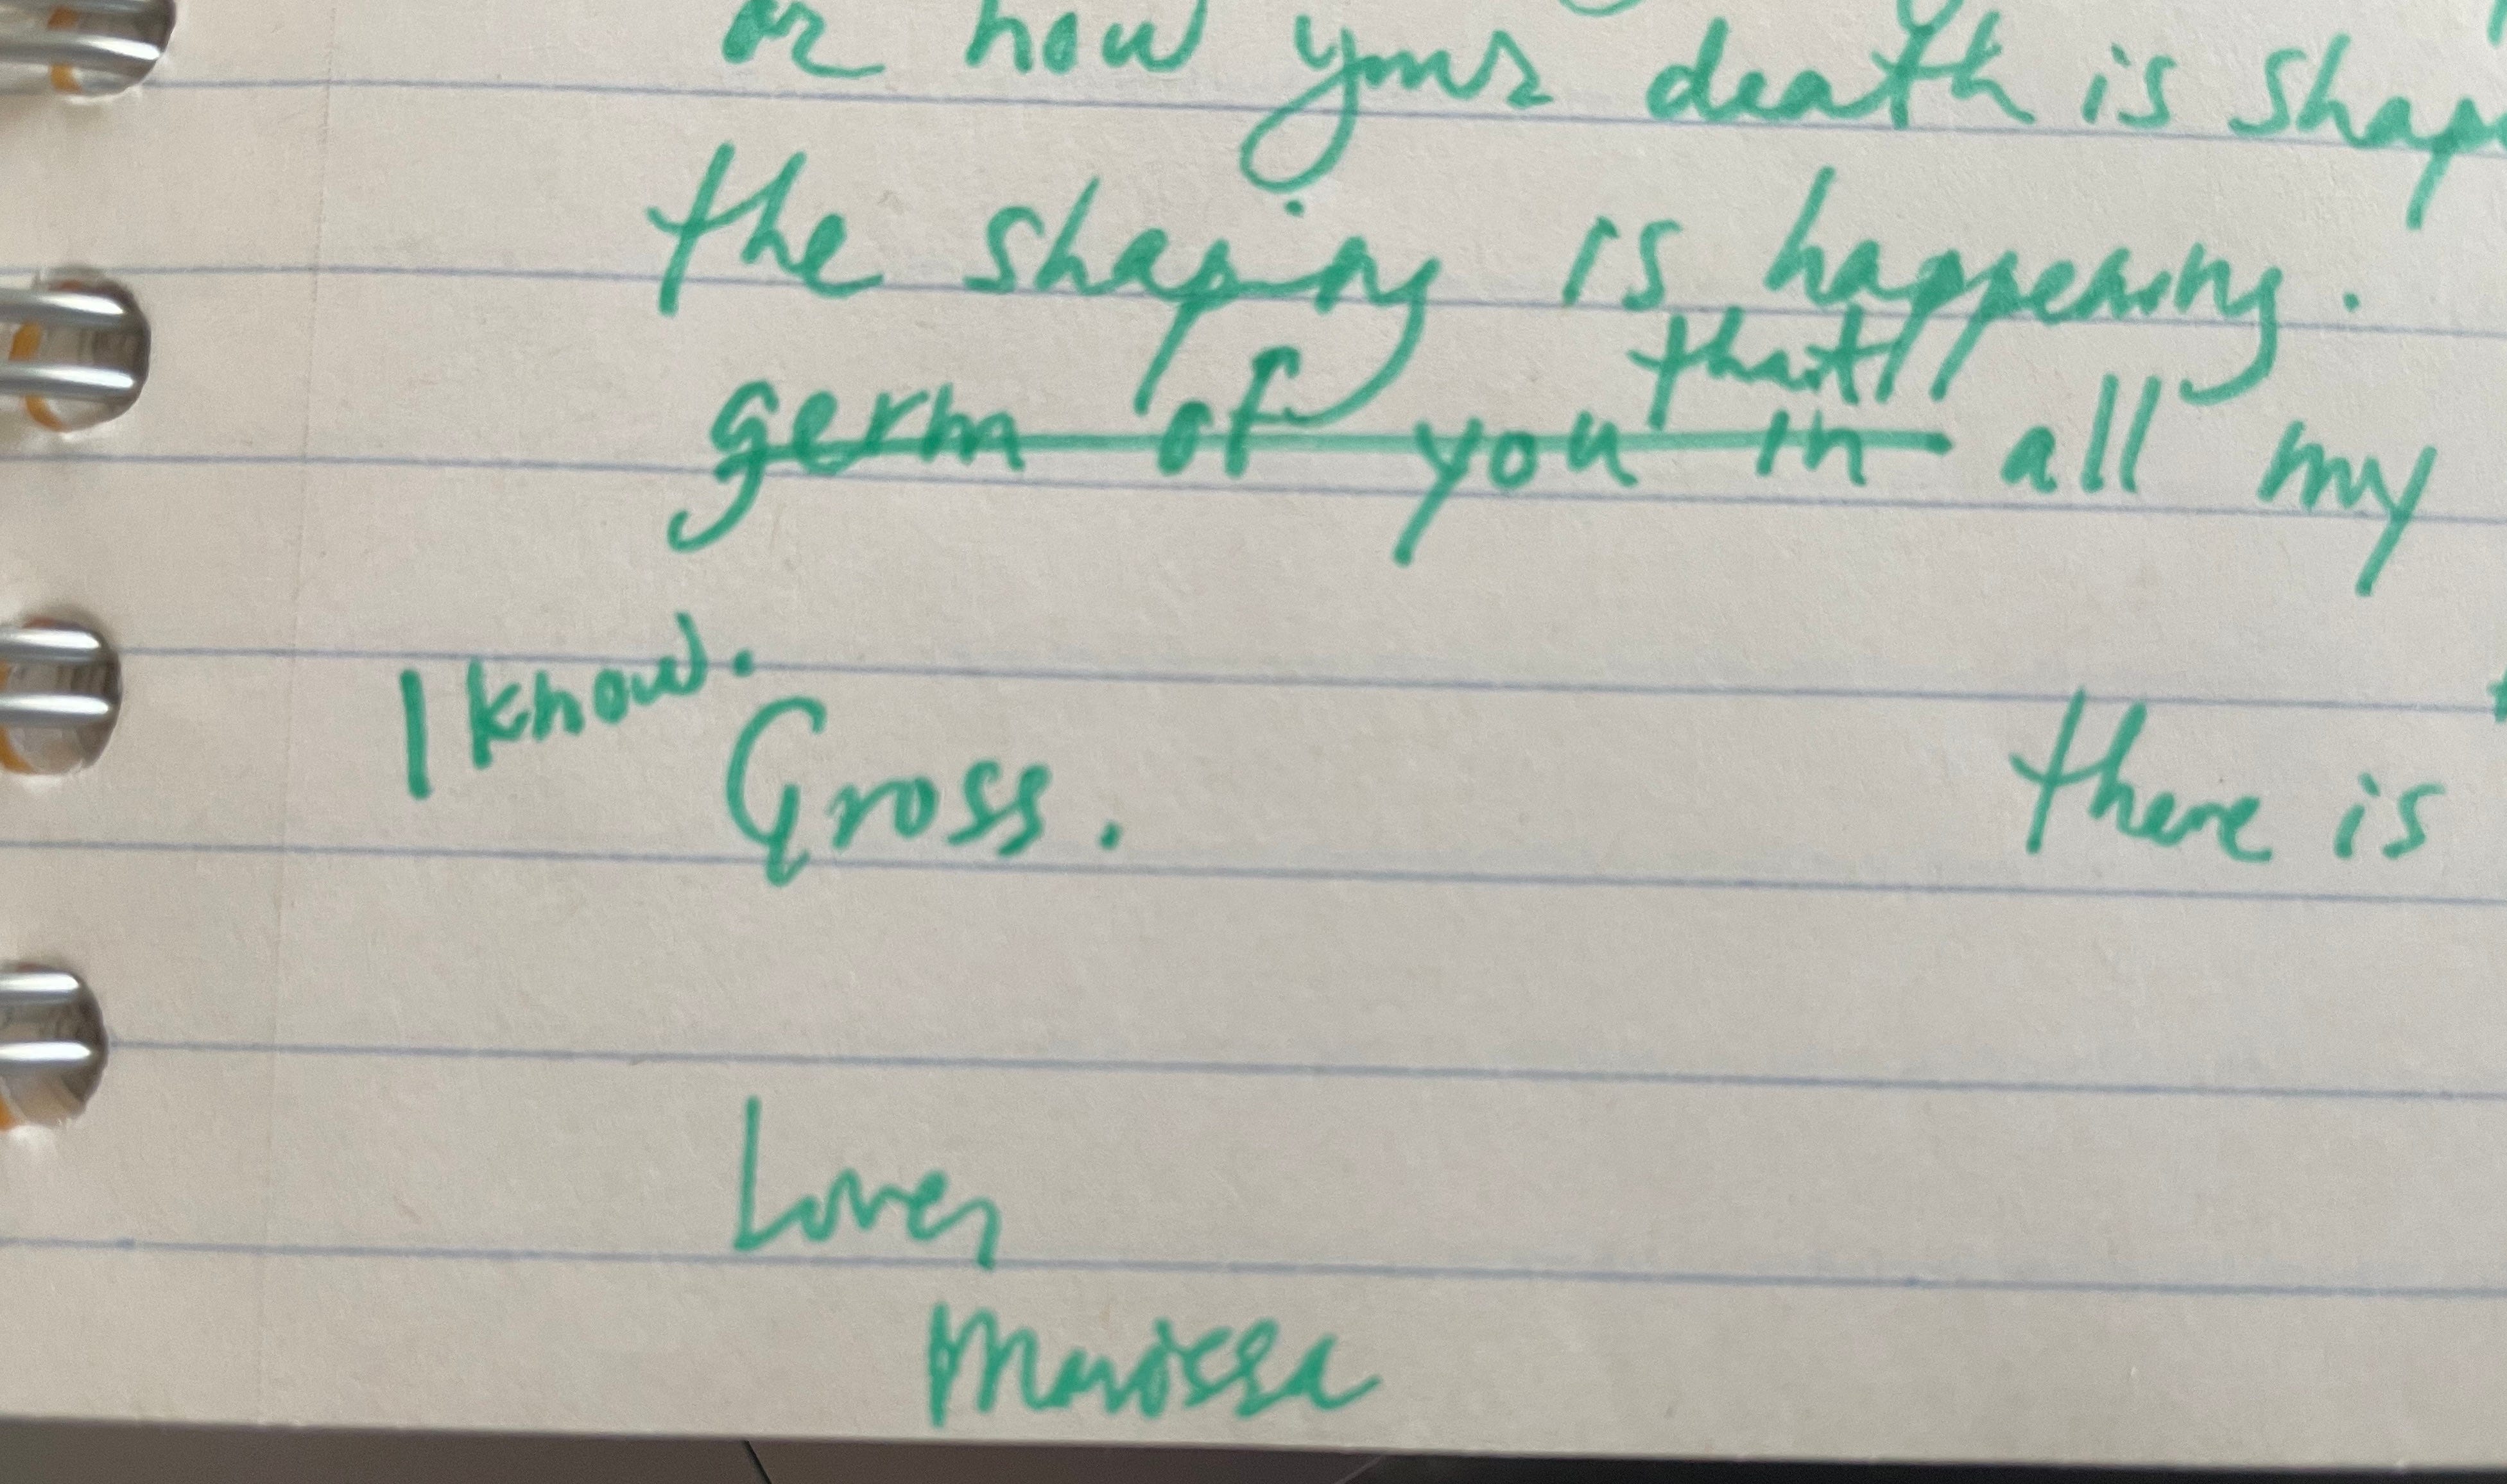 or how your death is shap
the shaping is happening.
that
germ of you in all my
I know.
Gross. there is
Love,
Marissa